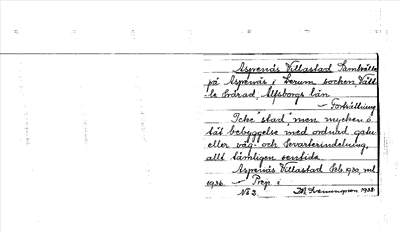 Aspenäs Villastad Samhälle
på Aspenäs i Lerum socken, Vätt-
le härad, Älfsborgs län
— Fortsättning
Icke "stad" men mycken o
tät bebyggelse med ordnad gatu
eller väg- och kvartersindelning,
allt tämligen sentida
Aspenäs Villastad Feb. 1930, ml
1936. — Prep i
No 2. 1938